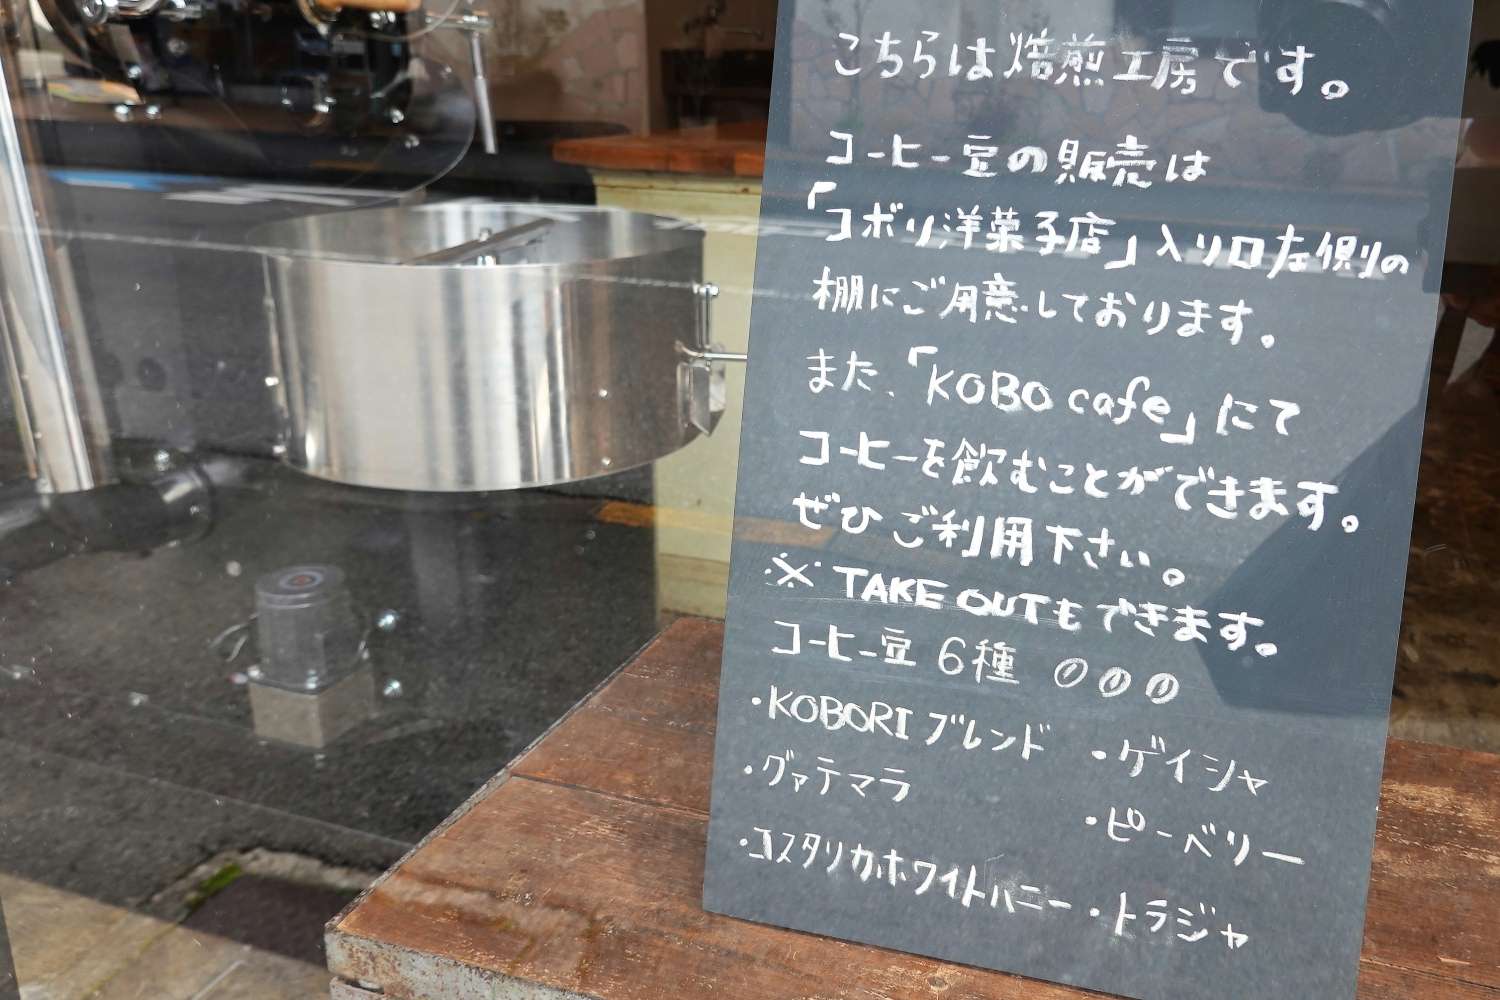 こちらは焙煎工房です。
コーヒー豆の販売は
「コボリ洋菓子店」入り口左側の
棚にご用意しております。
また、「KOBO cafe」にて
コーヒーを飲むことができます。
ぜひご利用下さい。
※TAKE OUTもできます。
コーヒー豆 6種
・KOBORI ブレンド ・ゲイシャ
・グァテマラ ・ピーベリー
・コスタリカホワイトハニー ・トラジャ